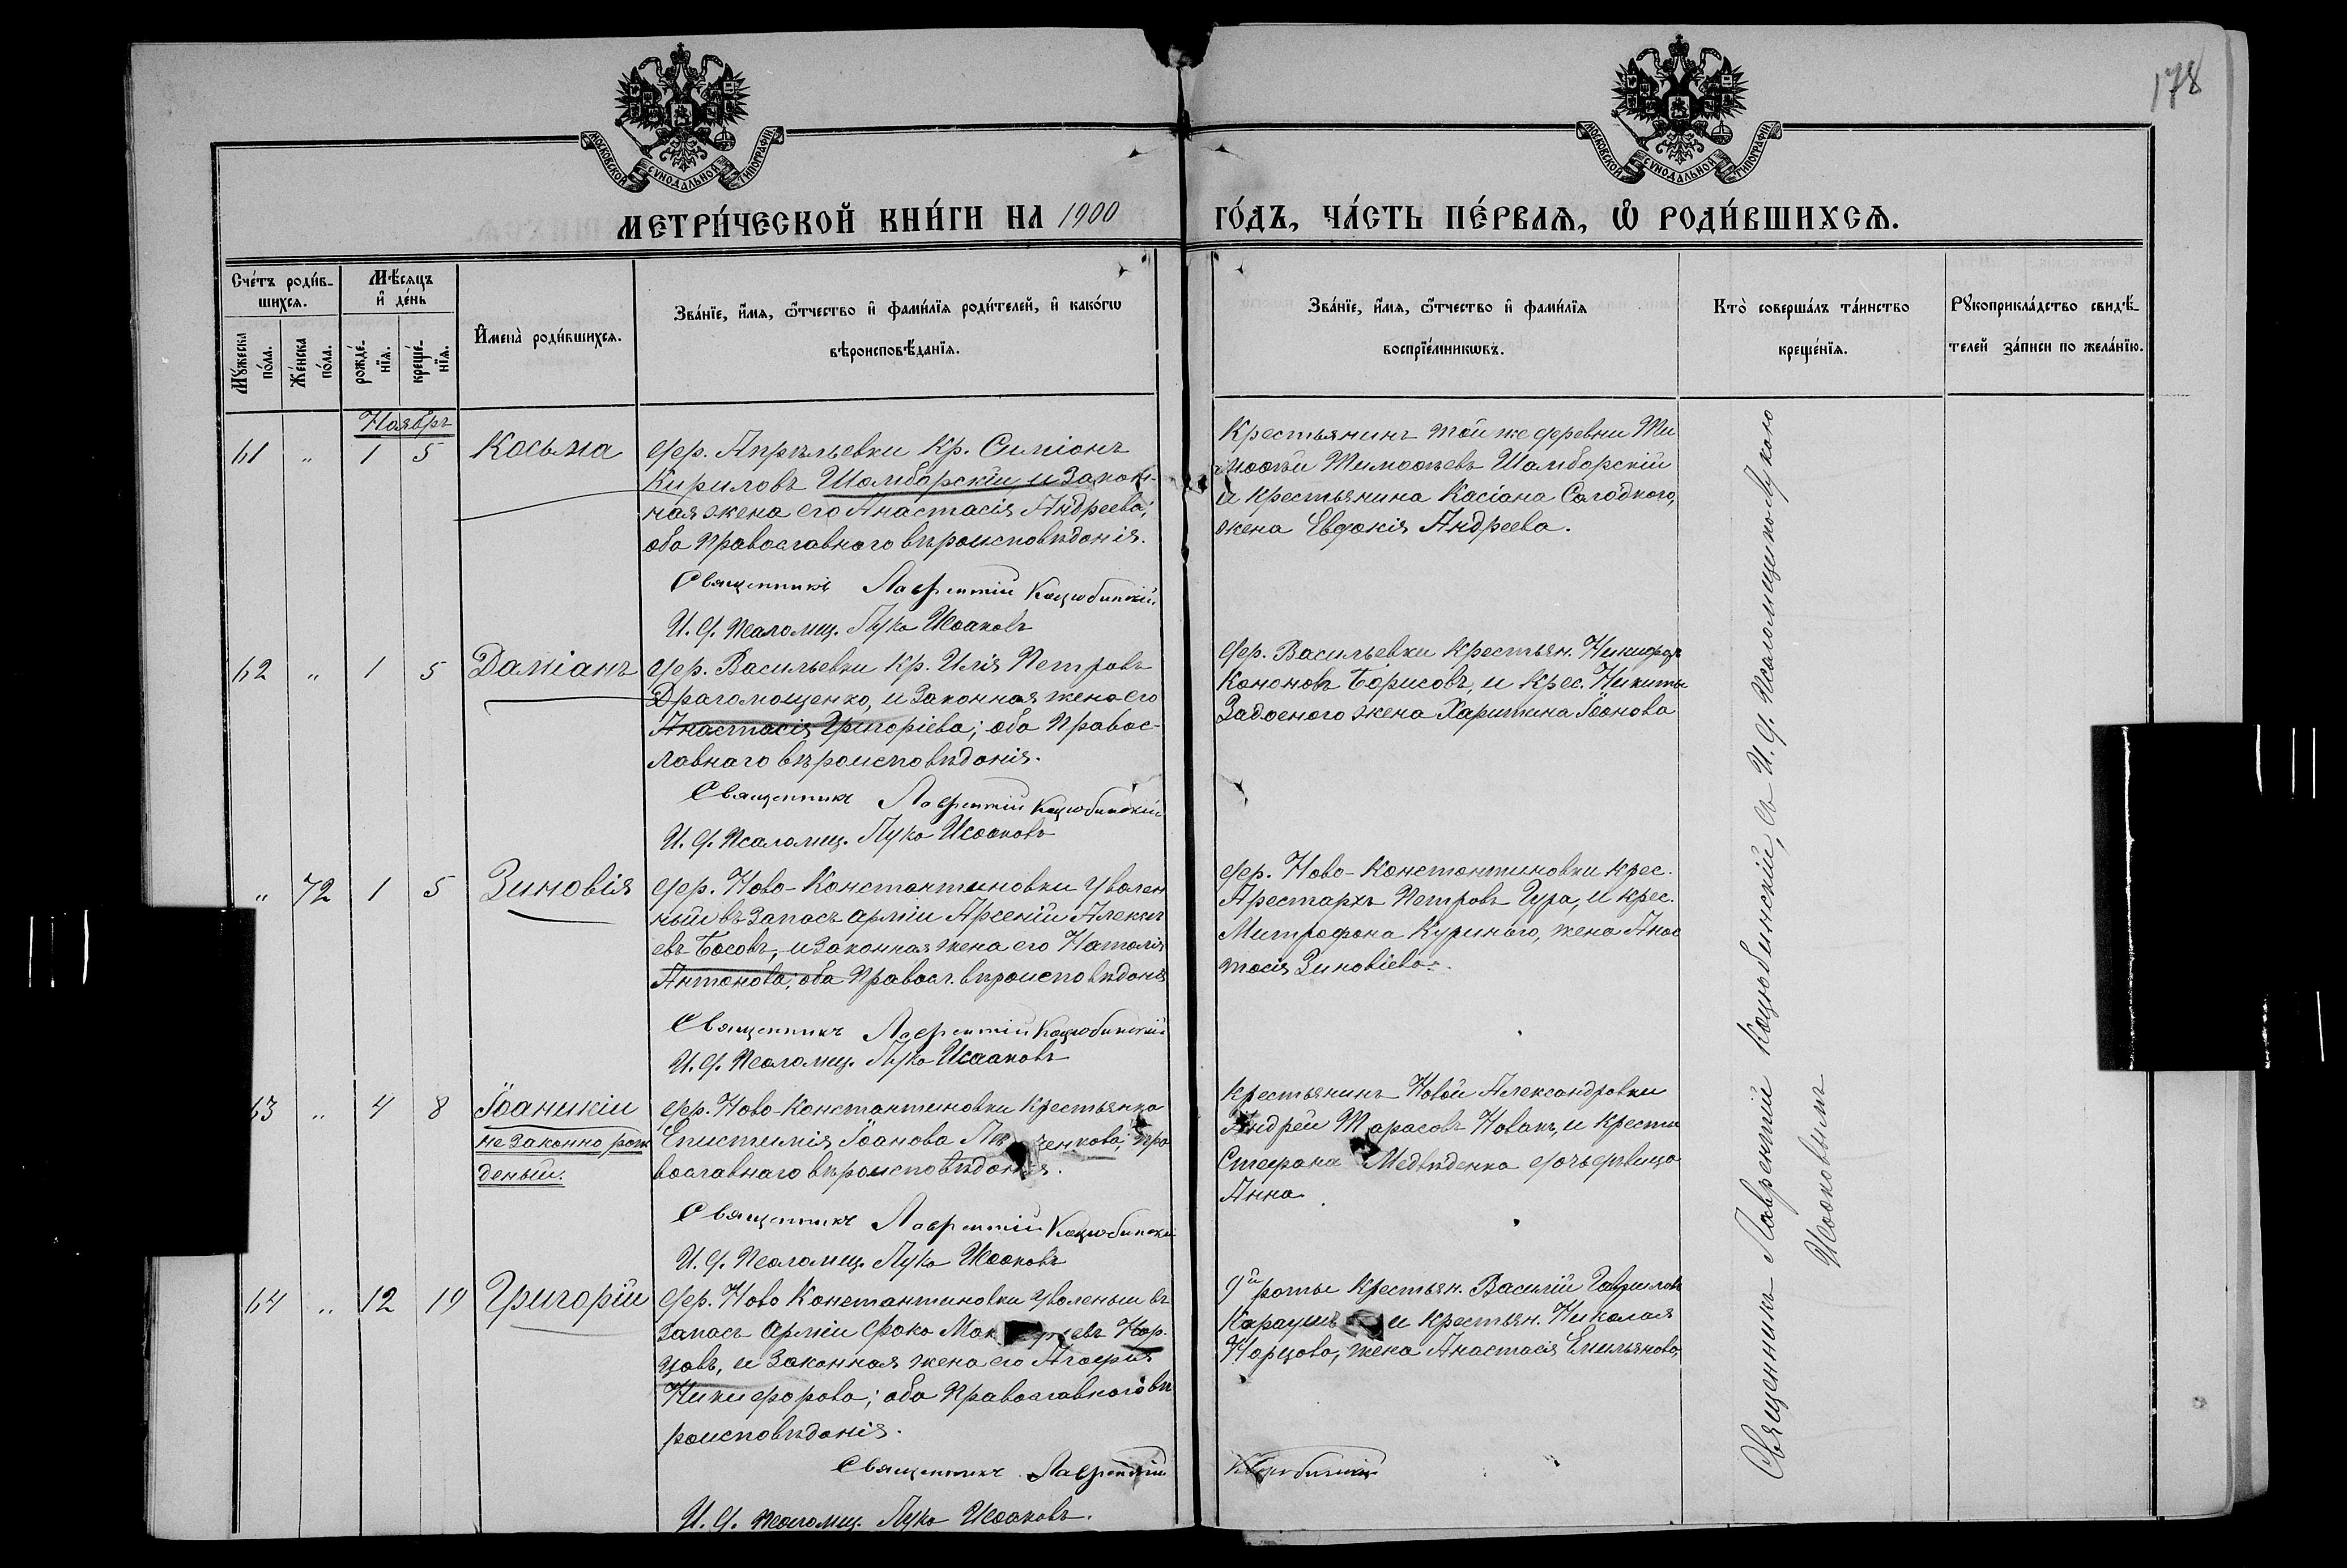 178
МОСКОВСКОЙ СѴНОДАЛЬНОЙ ТИПОГРАФІИ
МОСКОВСКОЙ СѴНОДАЛЬНОЙ ТИПОГРАФІИ
МЕТРИ́ЧЕСКОЙ КНИ́ГИ НА 1900 ГО́ДЪ, ЧА́СТЬ ПЕ́РВАѦ, Ѡ҆ РОДИ́ВШИХСѦ.
Сче́тъ роди́в-
шихсѧ.
Мꙋ́жеска по́ла.
Же́нска по́ла.
Мѣ́сѧцъ
и҆ де́нь
рожде́-нїѧ.
креще́-нїѧ.
И҆мена̀ роди́вшихсѧ.
Зва́нїе, и҆́мѧ, ѻ҆́тчество и҆ фами́лїѧ роди́телей, и҆ како́гѡ
вѣроисповѣ́данїѧ.
Зва́нїе, и҆́мѧ, ѻ҆́тчество и҆ фами́лїѧ
воспрїе́мникѡвъ.
Кто̀ соверша́лъ та́инство
креще́нїѧ.
Рꙋкоприкла́дство свидѣ́-
телей за́писи по жела́нїю.
Ноябрь
61 " 1 5 Косьма
дер. Апрѣльевки Кр. Симіонъ
Кириловъ Шамборскій и закон-
ная жена его Анастасія Андреева;
оба православнаго вѣроисповѣданія.
Священникъ Лаврентій Коцюбинскій
И. д. Псаломщ. Лука Исааковъ
Крестьянинъ той же деревни Ти
моѳей Тимоѳеевъ Шамборскій
и крестьянина Касіана Солодкого,
жена Евдокія Андреева.
62 " 1 5 Даміанъ
дер. Васильевки Кр. Илія Петровъ
Драгомощенко, и законная жена его
Анастасія Григоріева; оба правос-
лавнаго вѣроисповѣданія.
Священникъ Лаврентій Коцюбинскій
И. д. Псаломщ. Лука Исааковъ
дер. Васильевки крестьян. Никифоръ
Кононовъ Борисовъ, и крес. Никиты
жена Харитина Іоанова
" 72 1 5 Зиновія
дер. Ново-Константиновки уволен
ный въ запасъ арміи Арсеній Алексѣ
евъ Босовъ, и законная жена его Наталія
Антонова; оба правосл. вѣроисповѣданія
Священникъ Лаврентій Коцюбинскій
И. д. Псаломщ. Лука Исааковъ
дер. Ново-Константиновки крес.
Арестархъ Петровъ Гура, и крес.
Митрофана Куриного, жена Анас
тасія Зиновіева.
63 " 4 8 Іоаникій
не законно рож
деный.
дер. Ново-Константиновки крестьянка
Епистимія Іоанова ченкова; пра
вославнаго вѣроисповѣданія.
Священникъ Лаврентій Коцюбинскій
И. д. Псаломщ. Лука Исааковъ
Крестьянинъ Новой Александровки
Андрей Тарасовъ Новакъ, и крестья
Стефана Медвѣденка дочь дѣвица
Анна.
64 " 12 19 Григорій
дер. Ново Константиновки уволеный въ
запасъ арміи Фока Мак евъ Нор-
цовъ, и законная жена его Агафія
Никифорова; оба православнаго вѣ
роисповѣданія.
Священникъ Лаврентій Коцюбинскій
И. д. Псаломщ. Лука Исааковъ.
9й роты крестьян. Василій Гавриловъ
и крестьян. Николая
Норцова, жена Анастасія Емельянова.
Священникъ Лаврентій Коцюбинскій, съ И. д. Псаломщика Лукою
Исааковымъ